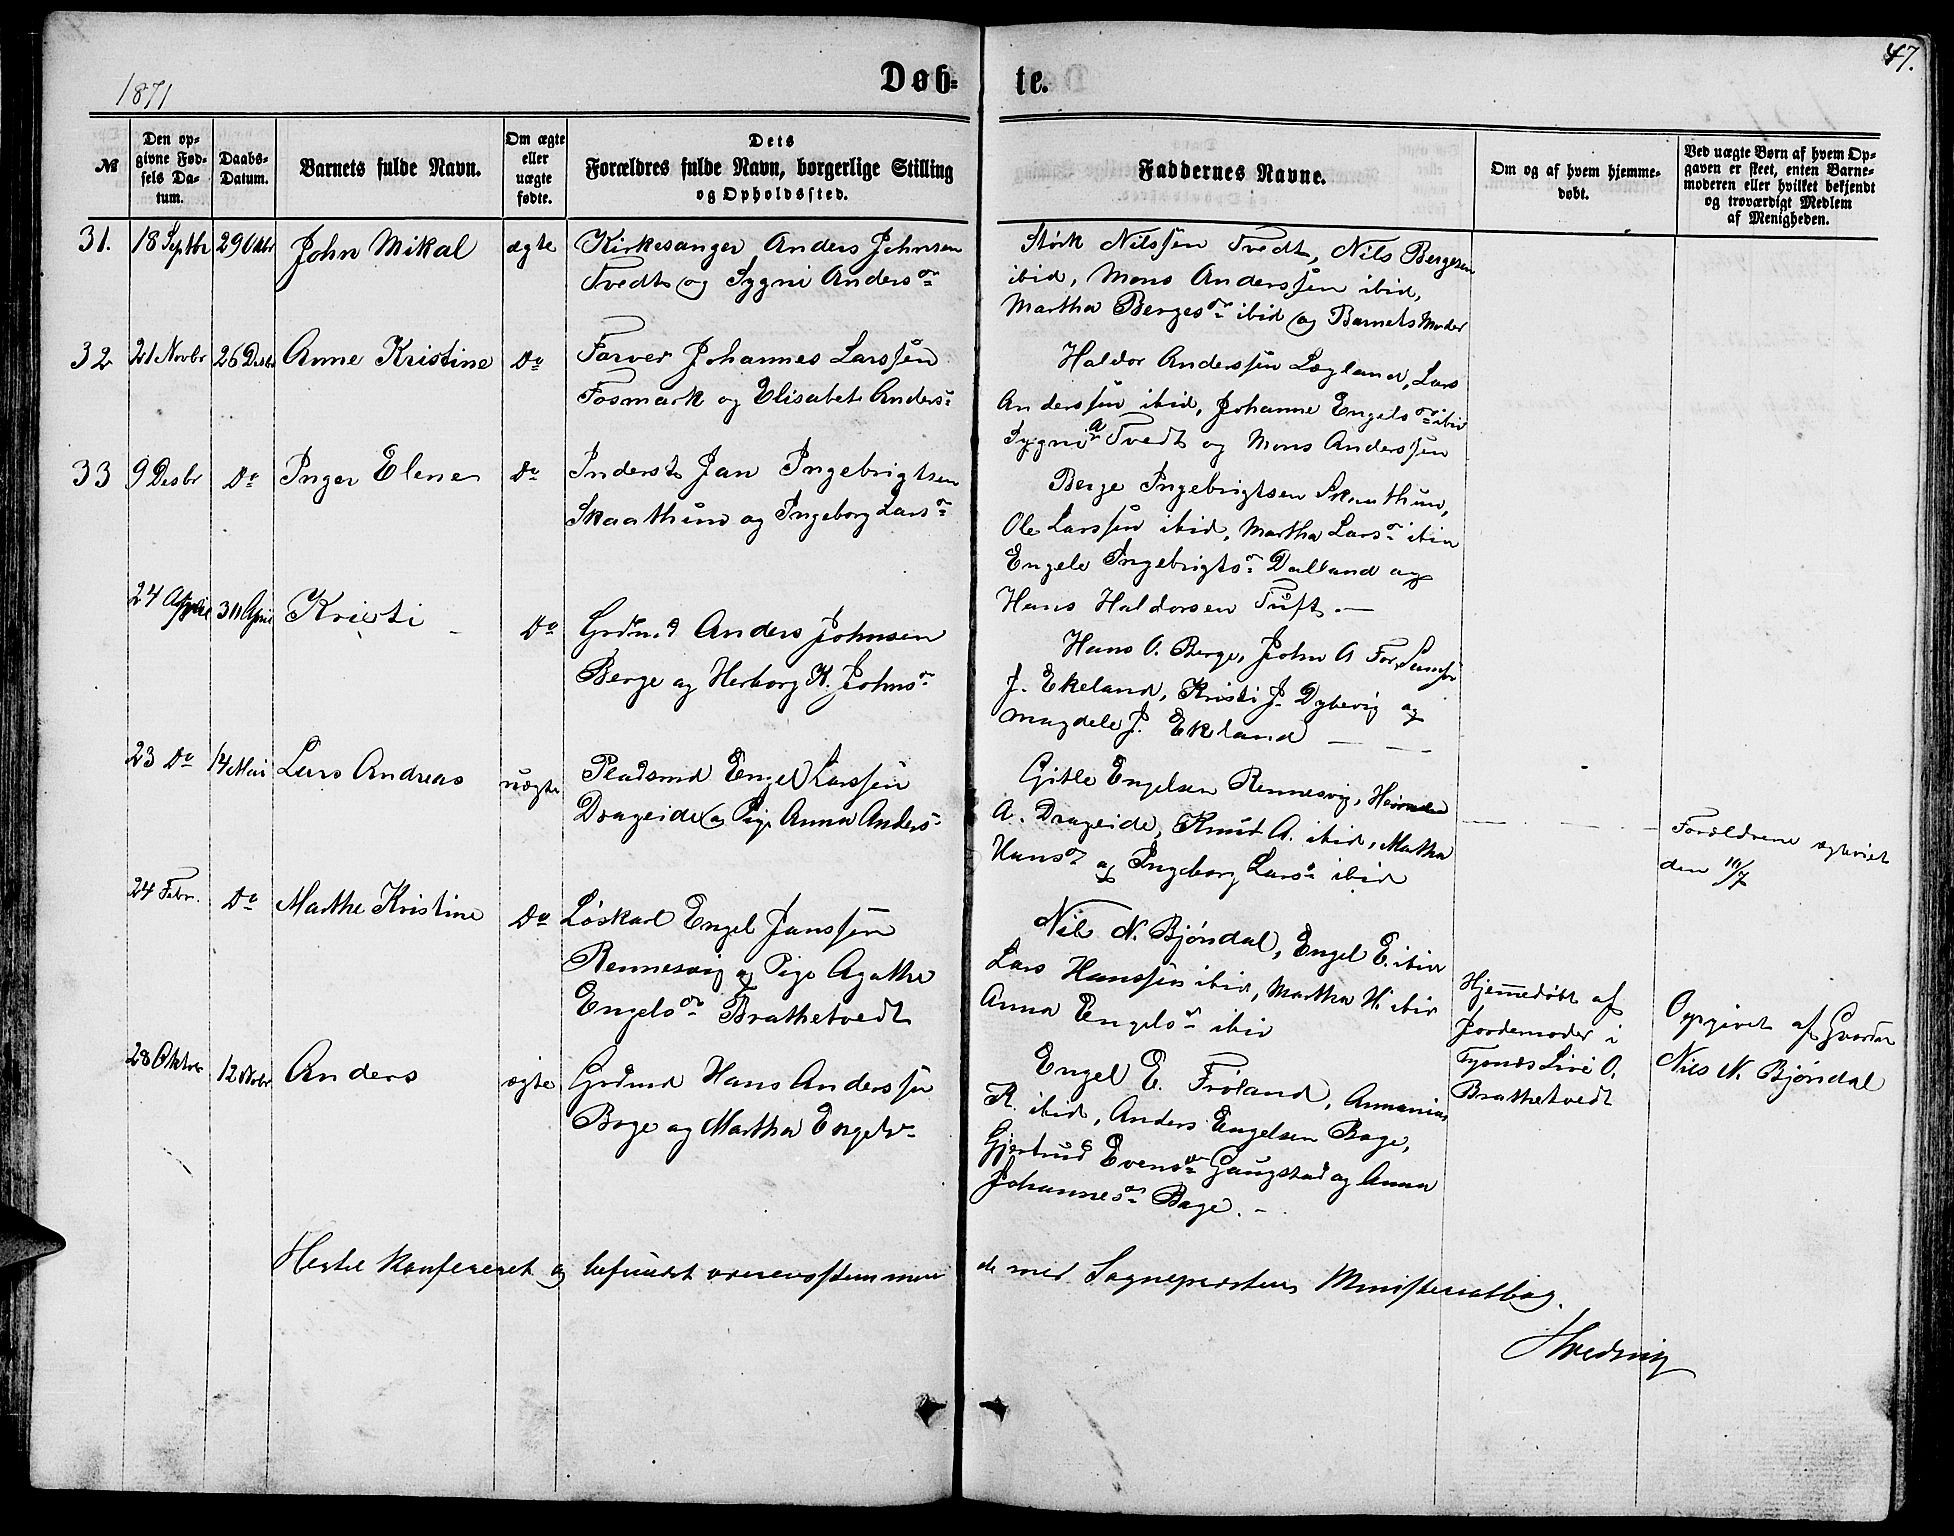 47.
1871
Døb-
te.
№
Den op-
givne Fød-
sels Da-
tum.
Daabs-
Datum.
Barnets fulde Navn.
Om ægte
eller
uægte
fødte.
Dets
Forældres fulde Navn, borgerlige Stilling
og Opholdssted.
Faddernes Navne.
Om og af hvem hjemme-
døbt.
Ved uægte Børn af hvem Op-
gaven er skeet, enten Barne-
moderen eller hvilket bekjendt
og troværdigt Medlem
af Menigheden.
31.
18 Septbr
29 Oktbr
John Mikal
ægte
Kirkesanger Anders Johnsen
Tvedt og Sygni Anders
Størk Nilssen Tvedt, Nils Bergesen
ibid, Mons Anderssen ibid,
Martha Berges ibid og Barnets Moder
32
21 Novbr
26 Desbr
Anne Kristine
Do
Farver Johannes Larssen
Fosmark og Elisabet Anders
Haldor Anderssen Løgland, Lars
Anderssen ibid, Johanne Engels ibid
Sygni A Tvedt og Mons Anderssen
33
9 Desbr
Do
Inger Elene
Do
Inderst Jan Ingebrigtsen
Skaathun og Ingeborg Lars
Berge Ingebrigtsen Skaathun,
Ole Larssen ibid, Martha Lars ibid
Engele Ingebrigts Dalland og
Hans Haldorsen Tuft. —
24 April
30 April
Kristi
Do
Grdmd Anders Johnsen
Berge og Herborg K. Johns
Hans O. Berge, John A For, Samson
J. Ekeland, Kristi J. Dybevig og
Magdele J. Ekland
23 Do
14 Mai
Lars Andreas
uægte
Pladsmd Engel Larssen
Drageide og Pige Anna Anders
Gitle Engelsen Rennesvig,
A. Drageide, Knud A. ibid, Martha
Hans og Ingeborg Lars ibid
Forældrene ægteviet
den 10/7
24 Febr.
Do
Marthe Kristine
Do
Løskarl Engel Janssen
Rennesvig og Pige Agathe
Engels Brathetvedt
Nils N. Bjøndal, Engel E. ibid
Lars Hanssen ibid, Martha H. ibid
Anna Engels ibid
Hjemmedøbt af
Jordemoder i
Tysnes Sire O.
Brathetvedt
Opgivet af Gaardm
Nils N. Bjøndal
28 Oktbr
12 Novbr
Anders
ægte
Grdmd Hans Anderssen
Bage og Martha Engels
Engel E. Frøland, Annanias
R. ibid, Anders Engelsen Bage,
Gjertrud Evens Gaugstad og Anna
Johannes Bage. —
Hertil konfereret og befundet overensstemmen
de med Sognepræstens Ministerialbog.